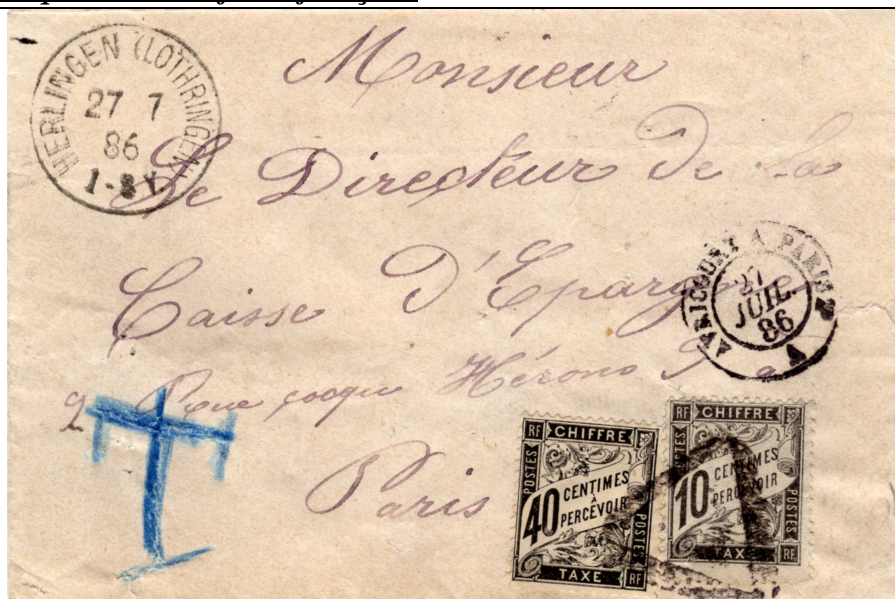 HERLINGEN (LOTHRINGEN)
27 7
86
Monsieur
Le Directeur de la
Caisse D'Epargne
Rue
Paris
AVRICOURT A PARIS
27
JUIL.
86
T
RF CHIFFRE
POSTES
40 CENTIMES
À
PERCEVOIR
POSTES
TAXE RF
RF CHIFFRE
POSTES
10 CENTIMES
À
PERCEVOIR
POSTES
TAXE RF